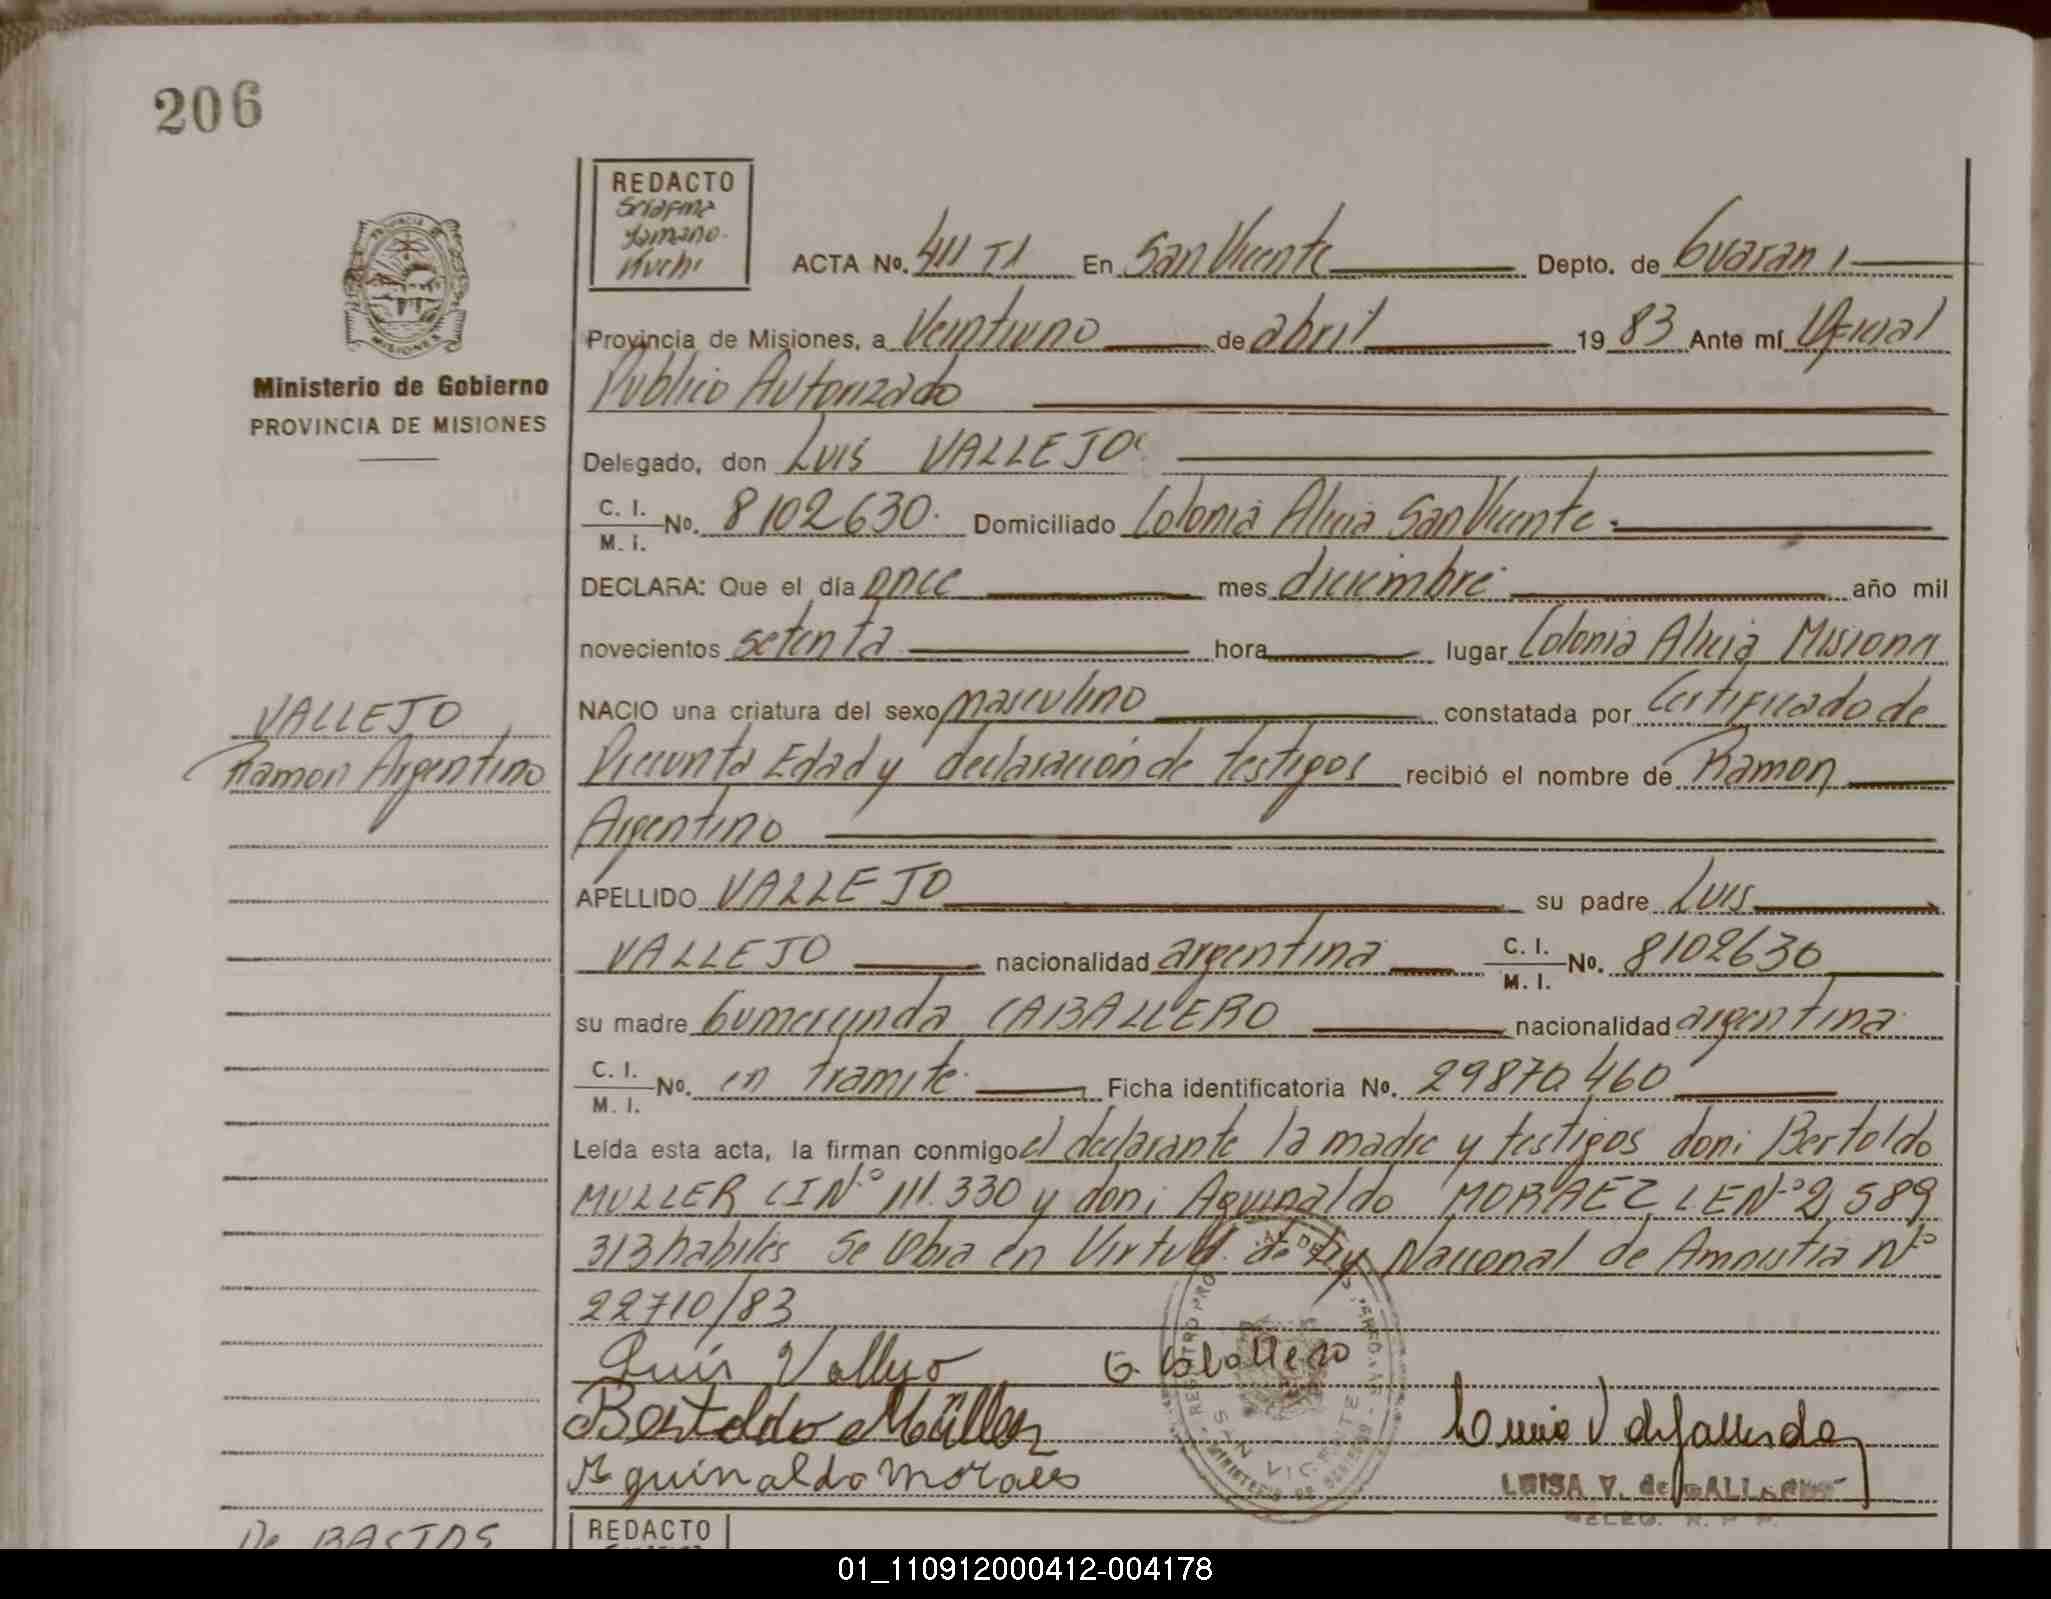 206
REDACTO
Serafina
ACTA No. 411 T1 En San Vicente Depto. de Guarani
Provincia de Misiones, a Veintiuno de abril 19 83 Ante mí Oficial
Publico Autorizado
Ministerio de Gobierno
PROVINCIA DE MISIONES
Delegado, don Luis VALLEJO
C. I.
M. I. No. 8102630. Domiciliado Colonia Alicia San Vicente.
DECLARA: Que el día once mes diciembre año mil
novecientos setenta hora lugar Colonia Alicia Misiones
NACIO una criatura del sexo masculino constatada por Certificado de
Presunta Edad y declaración de testigos recibió el nombre de Ramon
Argentino
VALLEJO
Ramon Argentino
APELLIDO VALLEJO su padre Luis
VALLEJO nacionalidad argentina C. I.
M. I. No. 8102630
su madre Gumercinda CABALLERO nacionalidad argentina
C. I.
M. I. No. en tramite. Ficha identificatoria No. 29870460
Leída esta acta, la firman conmigo el declarante la madre y testigos don: Bertoldo
MULLER CI N.º 111.330 y don: Aguinaldo MORAEZ LE N.º 2 589
313 habiles Se Obra en Virtud de Ley Nacional de Amnistia N.º
22710/83
Luis Vallejo G. Caballero
Bertoldo Müller
Aguinaldo Moraes
SAN VICENTE
LUISA V. de GALLARDO
De BASTOS
REDACTO
01_110912000412-004178